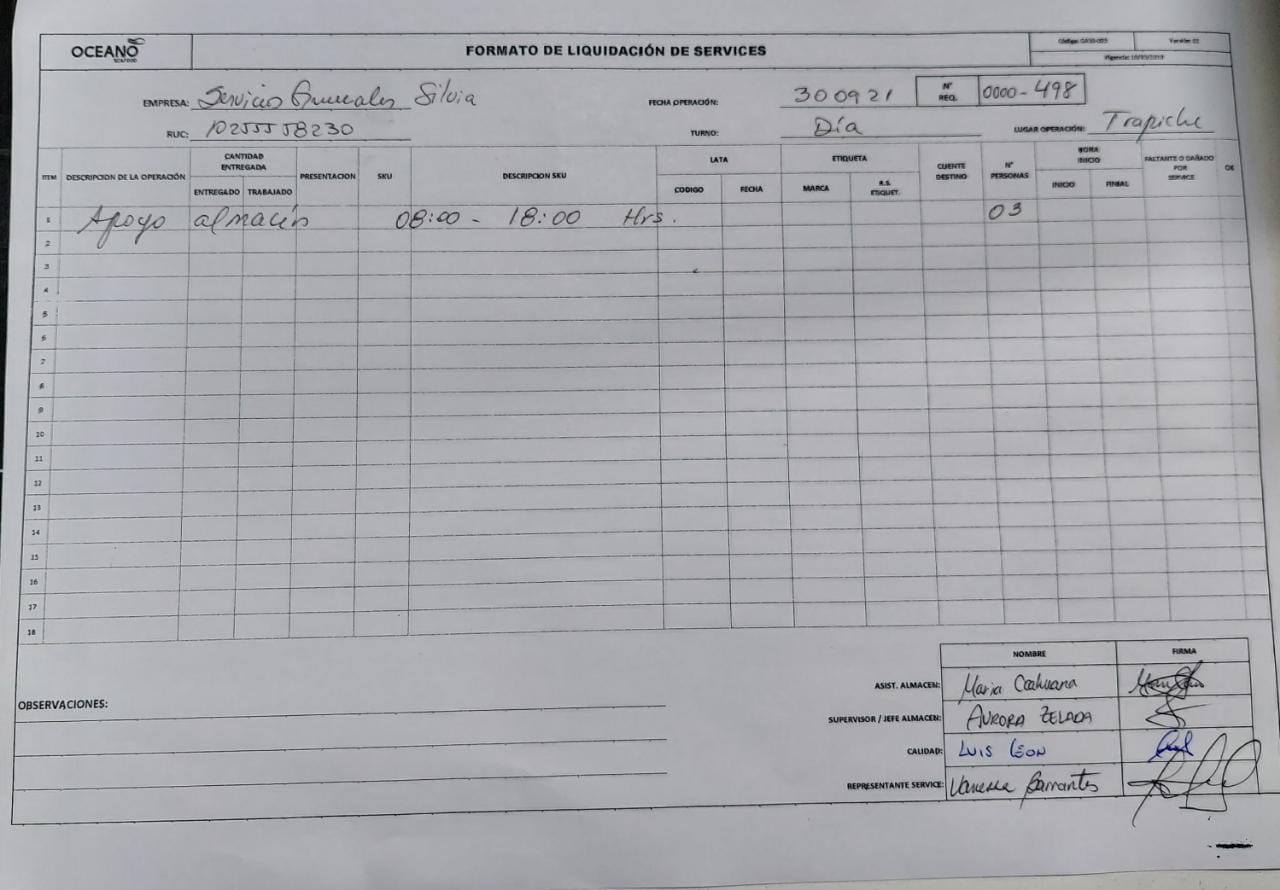 OCEANO
SEAFOOD
FORMATO DE LIQUIDACIÓN DE SERVICES
Versión: 02
EMPRESA: Servicios Generales Silvia
FECHA OPERACIÓN: 300921
N° REQ. 0000-498
RUC: 10255558230
TURNO: Día
LUGAR OPERACIÓN: Trapiche
ITEM DESCRIPCION DE LA OPERACIÓN CANTIDAD ENTREGADA ENTREGADO TRABAJADO PRESENTACION SKU DESCRIPCION SKU LATA CODIGO FECHA ETIQUETA MARCA R.S. ETIQUET. CLIENTE DESTINO N° PERSONAS HORA INICIO INICIO FINIAL FALTANTE O DAÑADO POR SERVICE
1 Apoyo almacén 08:00 - 18:00 Hrs. 03
2
3
4
5
6
7
8
9
10
11
12
13
14
15
16
17
18
NOMBRE FIRMA
ASIST. ALMACEN: Maria Ccahuana
OBSERVACIONES:
SUPERVISOR / JEFE ALMACEN: AURORA ZELADA
CALIDAD: LUIS LEON
REPRESENTANTE SERVICE: Vanessa Barrantes